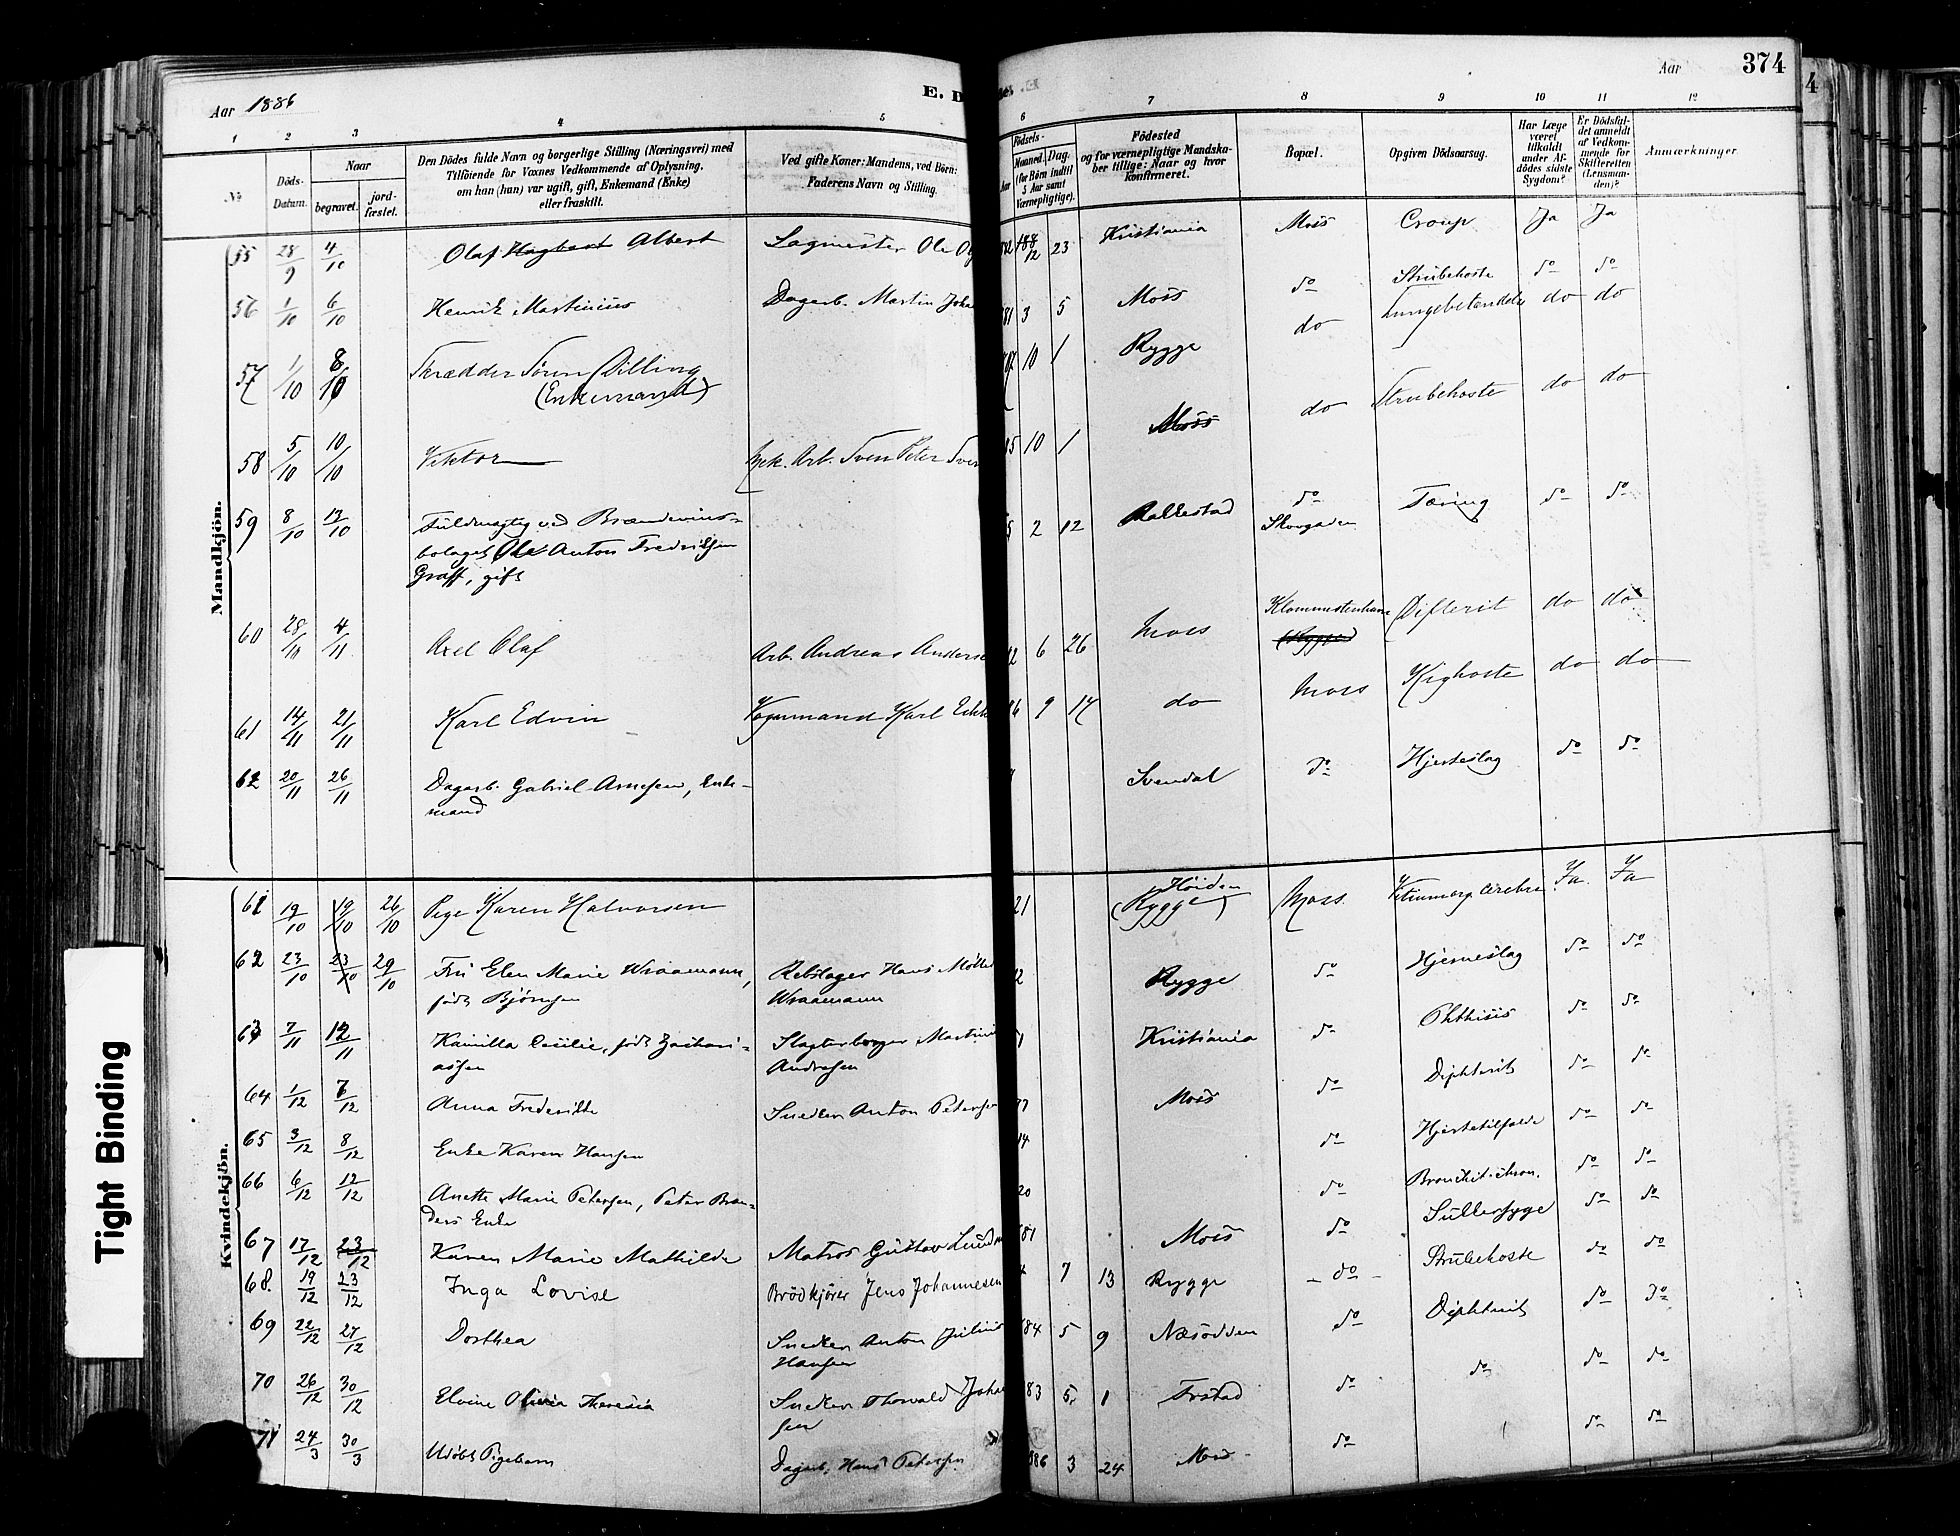 Aar 1886
E. D
Aar
374
1 2 3 4 5 6 7 8 9 10 11 12
No
Döds-Datum.
Naar
begravet.
jord-fæstet.
Den Dödes fulde Navn og borgerlige Stilling (Næringsvei) med
Tilföiende for Voxnes Vedkommende af Oplysning,
om han (hun) var ugift, gift, Enkemand (Enke)
eller fraskilt.
Ved gifte Koner: Mandens, ved Börn:
Faderens Navn og Stilling.
Födsels-
Aar Maaned. Dag.
(for Börn indtil
5 Aar samt
Værnepligtige).
Födested
og for værnepligtige Mandska-
ber tillige: Naar og hvor
konfirmeret.
Bopæl.
Opgiven Dödsaarsag.
Har Læge
været
tilkaldt
under Af-
dödes sidste
Sygdom?
Er Dödsfal-
det anmeldt
af Vedkom-
mende for
Skifteretten
(Lensman-
den)?
Anmærkninger
Mandkjön.
55 28/9 4/10 Olaf Hagbart Albert Sagmester Ole 12 23 Kristiania Moss Croup Ja Ja
56 1/10 6/10 Henrik Martinius Dagarb. Martin Joha 81 3 5 Moss do Strubehoste do do
57 1/10 8/10 Skrædder Sören Dilling 10 1 Rygge do Lungebetændelse do do
(Enkemand)
58 5/10 10/10 Viktor Mek. Arb. Sven Peter Sven 10 1 Moss do Strubehoste do do
59 8/10 13/10 Fuldmægtig ved Brændevins- 2 12 Rakkestad do Tæring do do
bolaget Ole Anton Fredriksen Skovgaden
Graff, gift
60 28/10 4/11 Axel Olaf Arb. Andreas Anderse 6 26 Moss (Rygge) Difterit do do
61 14/11 21/11 Karl Edvin Vognmand Karl 9 17 do Moss Kighoste do do
62 20/11 26/11 Dagarb. Gabriel Arnesen, Enke- Svendal do Hjerteslag do do
mand
Kvindekjön.
61 19/10 19/10 26/10 Pige Karen Halvorsen 21 Höiden (Rygge) Moss. Ja. Ja
62 23/10 23/10 29/10 Fru Elen Marie Wraamann, Rebslager Hans Mölle Rygge do Hjerneslag do do
födt Björnsen Wraamann
63 7/11 12/11 Kamilla Cecilie, födt Zachari- Slagterborger Martin Kristiania do Phthisis do do
assen Andresen
64 1/12 7/12 Anna Fredrikke Snedker Anton Peterse Moss do Diphterit do do
65 3/12 8/12 Enke Karen Hansen 14 do Hjertetilfælde do do
66 6/12 12/12 Anette Marie Petersen, Peter Bran- 20 do Bronchit. chron. do do
ders Enke
67 17/12 23/12 Karen Marie Mathilde Matros Gustav Lund 81 Moss do Sukkersyge do do
68. 19/12 23/12 Inga Lovise Brödkjörer Jens Johannesen 7 13 Rygge - do - Strubehoste do do
69 22/12 27/12 Dorthea Snedker Anton Julius 84 5 9 Næsodden do Diphterit do do
Hansen
70 26/12 30/12 Elvine Olivia Theresia Snedker Thorvald Joha 83 5 1 Trøstad do do do do
sen
71 24/3 30/3 Udöbt Pigebarn Dagarb. Hans Petersen 886 3 24 Moss do do do
Tight Binding